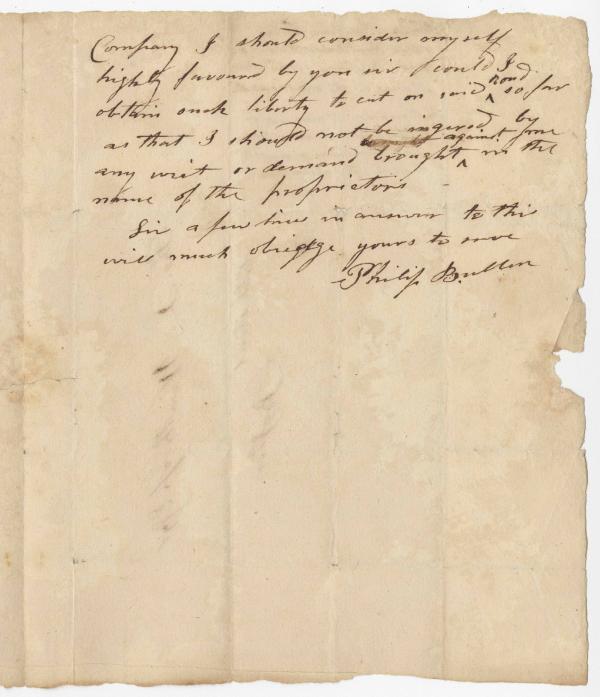 Company I should consider myself
highly favoured by you sir could I
obtain such liberty to cut on said road so far
as that I should not be ingered by
any writ or demand brought against me in the
name of the proprietors
Sir a few lines in answer to this
will much obiegge yours to serve
Philip Bullen